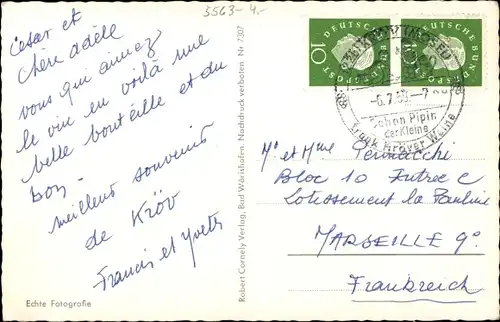 5563-4,-
César et
chère adèle
vous qui aimez
le vin en voilà une
belle bouteille et du
bon.
meilleur souvenir
de Kröv
Francis et Yvette
Echte Fotografie
Robert Cornely-Verlag, Bad Wörishofen. Nachdruck verboten Nr 7307
DEUTSCHE BUNDESPOST
10
DEUTSCHE BUNDESPOST
10
-6.7.60.-7
Schon Pipin
der Kleine
trank Kröver Weine
Mr et Mme Pennacchi
Bloc 10 Entrée C
Lotissement la Pauline
MARSEILLE 9e
Frankreich